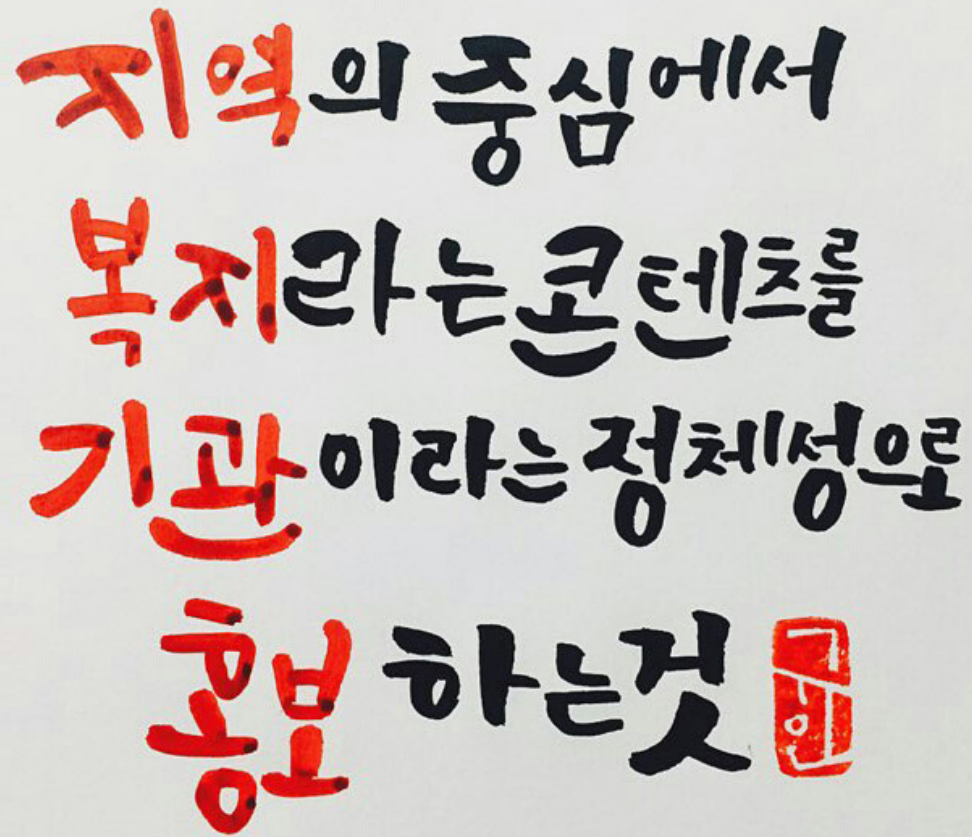 지역의 중심에서
복지라는 콘텐츠를
기관이라는 정체성으로
홍보하는것